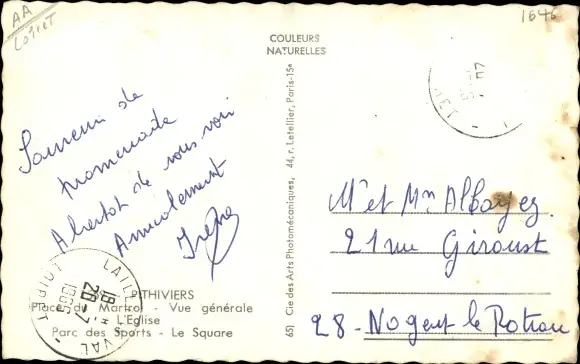 AA
Loiret
1646
COULEURS
NATURELLES
Souvenir de
promenade
A bientôt de vous voir
Amicalement
Irène
65) Cie des Arts Photomécaniques, 44, r. Letellier, Paris-15e
Mr et Mme Alboyez
21 rue Giroust
28 - Nogent le Rotrou
PITHIVIERS
Place du Martroi - Vue générale
L'Eglise
Parc des Sports - Le Square
18 H
28-7
LOIRET